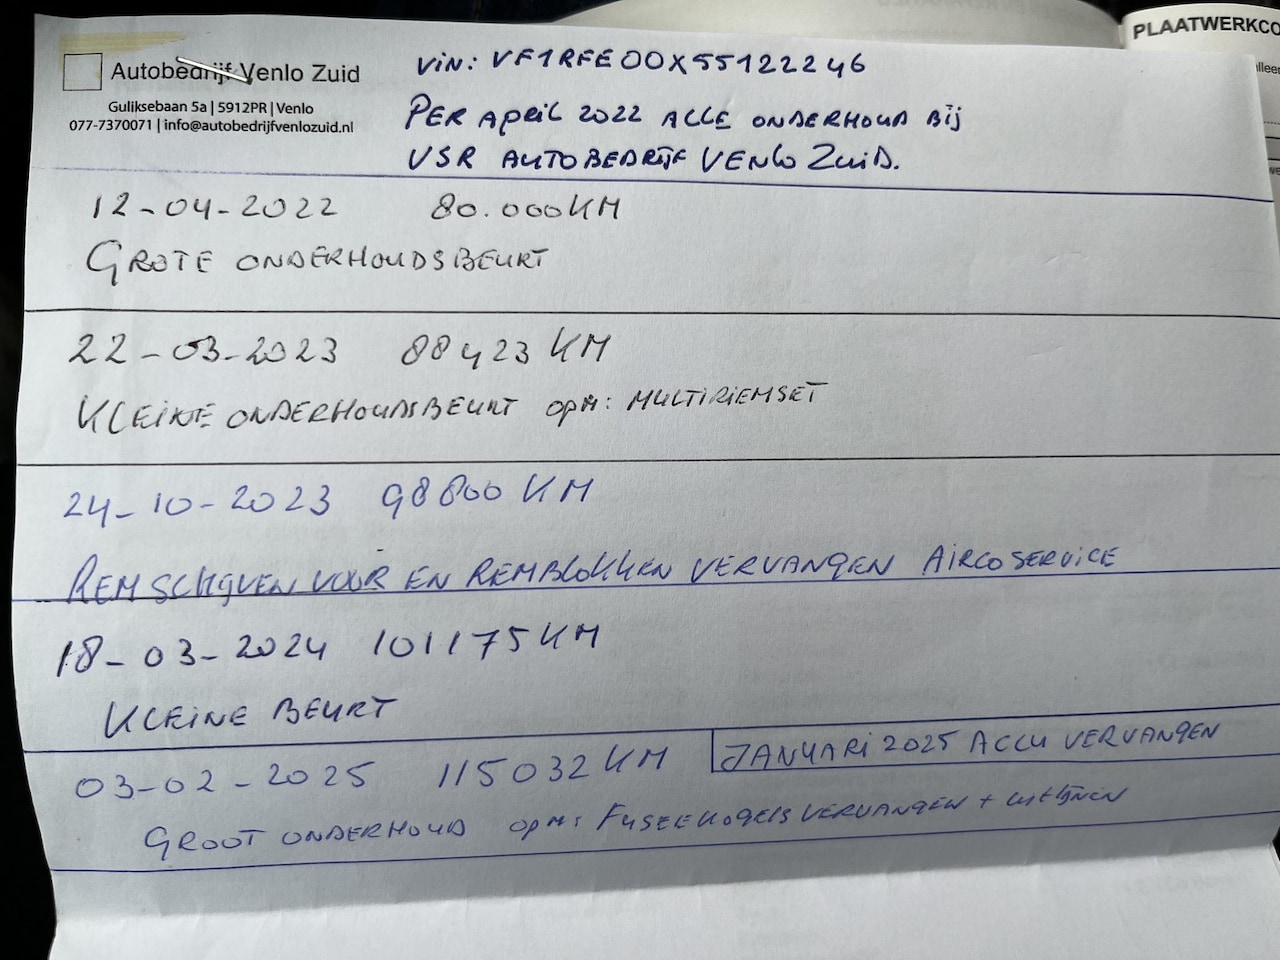 PLAATWERKCO
Autobedrijf Venlo Zuid
Guliksebaan 5a | 5912PR | Venlo
077-7370071 | info@autobedrijfvenlozuid.nl
VIN: VF1RFE00X55122246
PER APRIL 2022 ALLE ONDERHOUD BIJ
VSR AUTOBEDRIJF VENLO ZUID.
12-04-2022 80.000KM
GROTE ONDERHOUDSBEURT
22-03-2023 88423 KM
KLEINE ONDERHOUDSBEURT OPM: MULTIRIEMSET
24-10-2023 98800 KM
REMSCHIJVEN VOOR EN REMBLOKKEN VERVANGEN AIRCOSERVICE
18-03-2024 101175KM
KLEINE BEURT
03-02-2025 115032KM
JANUARI 2025 ACCU VERVANGEN
GROOT ONDERHOUD OPM: FUSEEKOGELS VERVANGEN + UITLIJNEN